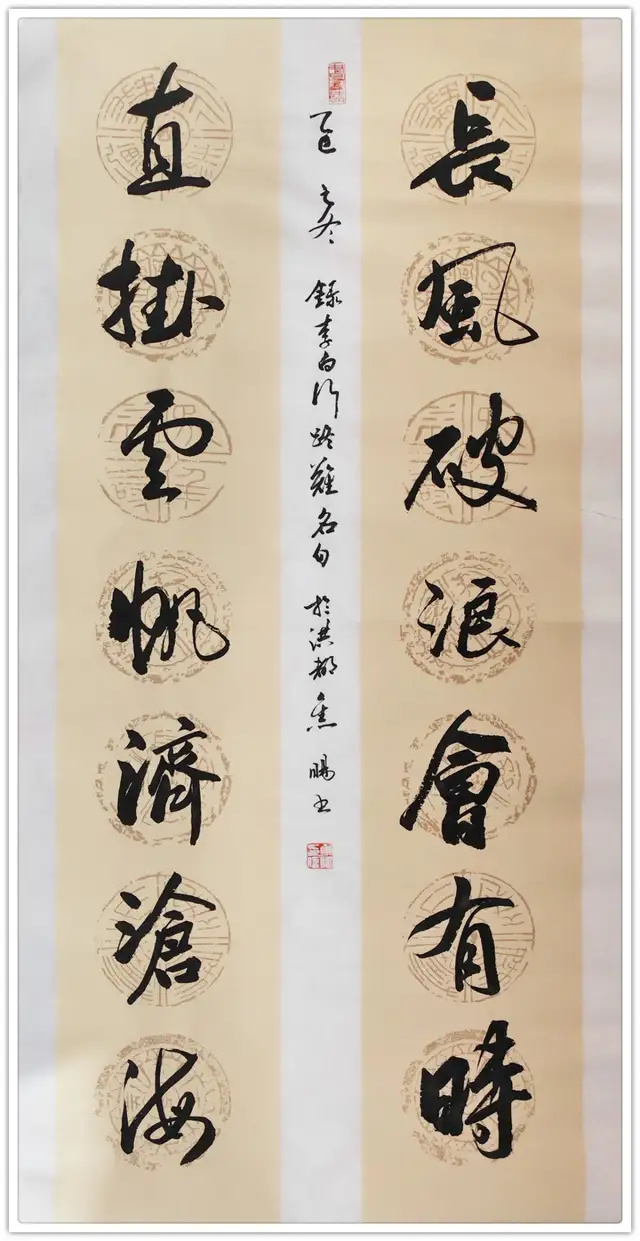 長風破浪會有時
直掛雲帆濟滄海
乙巳之冬 錄李白行路難名句 於洪都 焦暘書